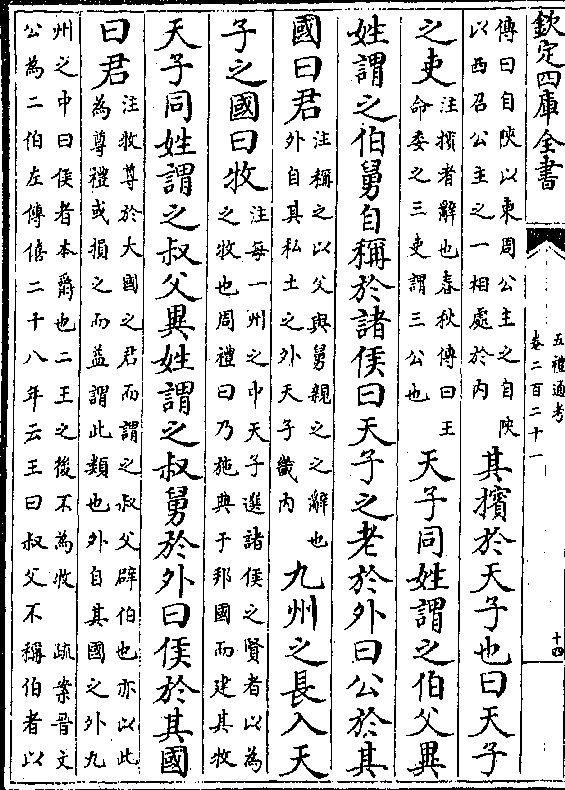 欽定四庫全書
五禮通考
卷二百二十一
十四
傳曰自陝以東周公主之自陝
以西召公主之一相處於内
其擯於天子也曰天子
之吏
注擯者辭也春秋傳曰王
命委之三吏謂三公也
天子同姓謂之伯父異
姓謂之伯舅自稱於諸侯曰天子之老於外曰公於其
國曰君
注稱之以父與舅親之之辭也
外自其私土之外天子畿内
九州之長入天
子之國曰牧
注每一州之中天子選諸侯之賢者以為
之牧也周禮曰乃施典于邦國而建其牧
天子同姓謂之叔父異姓謂之叔舅於外曰侯於其國
曰君
注牧尊於大國之君而謂之叔父辟伯也亦以此
為尊禮或損之而益謂此類也外自其國之外九
州之中曰侯者本爵也二王之後不為牧
疏案晉文
公為二伯左傳僖二十八年云王曰叔父不稱伯者以